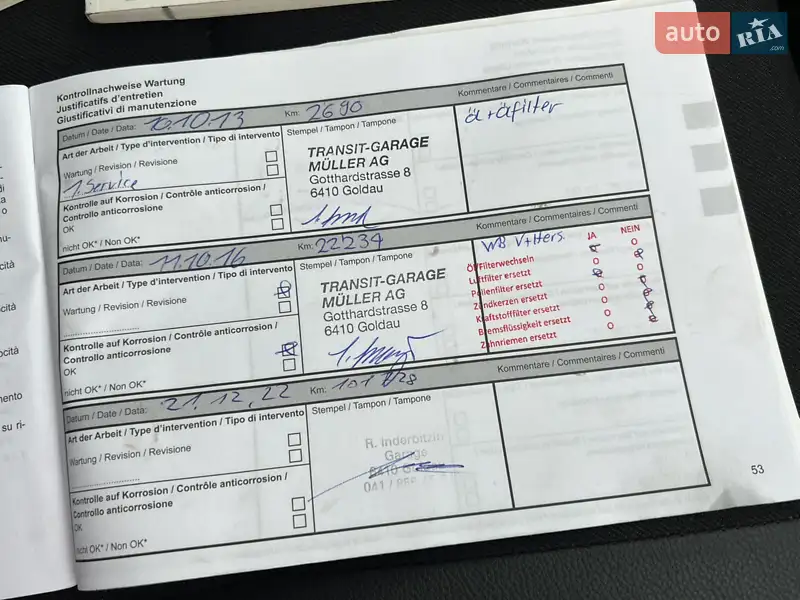 auto RIA .com
Kontrollnachweise Wartung
Justificatifs d'entretien
Giustificativi di manutenzione
Datum / Date / Data: 10.10.13 Km: 2690
Kommentare / Commentaires / Commenti
Art der Arbeit / Type d'intervention / Tipo di intervento
Wartung / Revision / Revisione
1. Service
Kontrolle auf Korrosion / Contrôle anticorrosion /
Controllo anticorrosione
OK
nicht OK* / Non OK*
Stempel / Tampon / Tampone
TRANSIT-GARAGE
MÜLLER AG
Gotthardstrasse 8
6410 Goldau
ä + äfilter
Datum / Date / Data: 11.10.16 Km: 22234
Kommentare / Commentaires / Commenti
Art der Arbeit / Type d'intervention / Tipo di intervento
Wartung / Revision / Revisione
Kontrolle auf Korrosion / Contrôle anticorrosion /
Controllo anticorrosione
OK
nicht OK* / Non OK*
Stempel / Tampon / Tampone
TRANSIT-GARAGE
MÜLLER AG
Gotthardstrasse 8
6410 Goldau
WB V+Hers. JA NEIN
Filterwechseln
Luftfilter ersetzt
Pollenfilter ersetzt
Zündkerzen ersetzt
Kraftstofffilter ersetzt
Bremsflüssigkeit ersetzt
Zahnriemen ersetzt
Datum / Date / Data: 21.12.22 Km:
Kommentare / Commentaires / Commenti
Art der Arbeit / Type d'intervention / Tipo di intervento
Wartung / Revision / Revisione
Kontrolle auf Korrosion / Contrôle anticorrosion /
Controllo anticorrosione
OK
nicht OK* / Non OK*
Stempel / Tampon / Tampone
R. Inderbitzin
Garage
6410
041 /
53